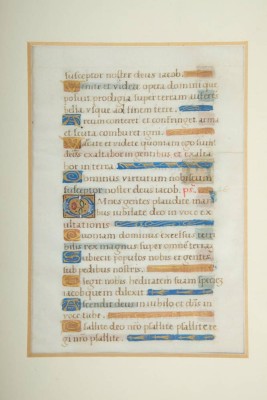 susceptor noster deus iacob.
Venite et videte opera domini que
posuit prodigia super terram auferens
bella usque ad finem terre.
Arcum conteret et confringet arma
et scuta comburet igni.
Vacate et videte quoniam ego sum
deus exaltabor in gentibus et exalta
bor in terra
Dominus virtutum nobiscum
susceptor noster deus iacob. ps.
Omnes gentes plaudite mani
bus iubilate deo in voce ex
ultationis
Quoniam dominus excelsus terri
bilis rex magnus super omnem terram
Subiecit populos nobis et gentes
sub pedibus nostris
Elegit nobis hereditatem suam speciem
iacob quem dilexit
Ascendit deus in iubilo et dns in
voce tube.
Psallite deo nro psallite psallite re
gi nro psallite